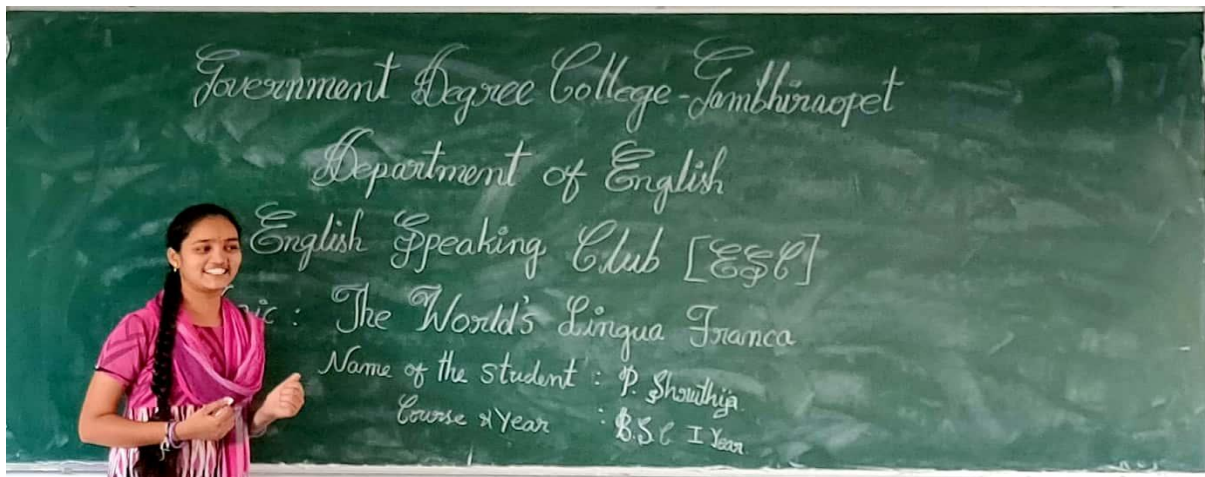 Government Degree College-Gambhiraopet
Department of English
English Speaking Club [ESC]
Topic: The World's Lingua Franca
Name of the student : P. Shruthija
Course & Year : B.SC I Year